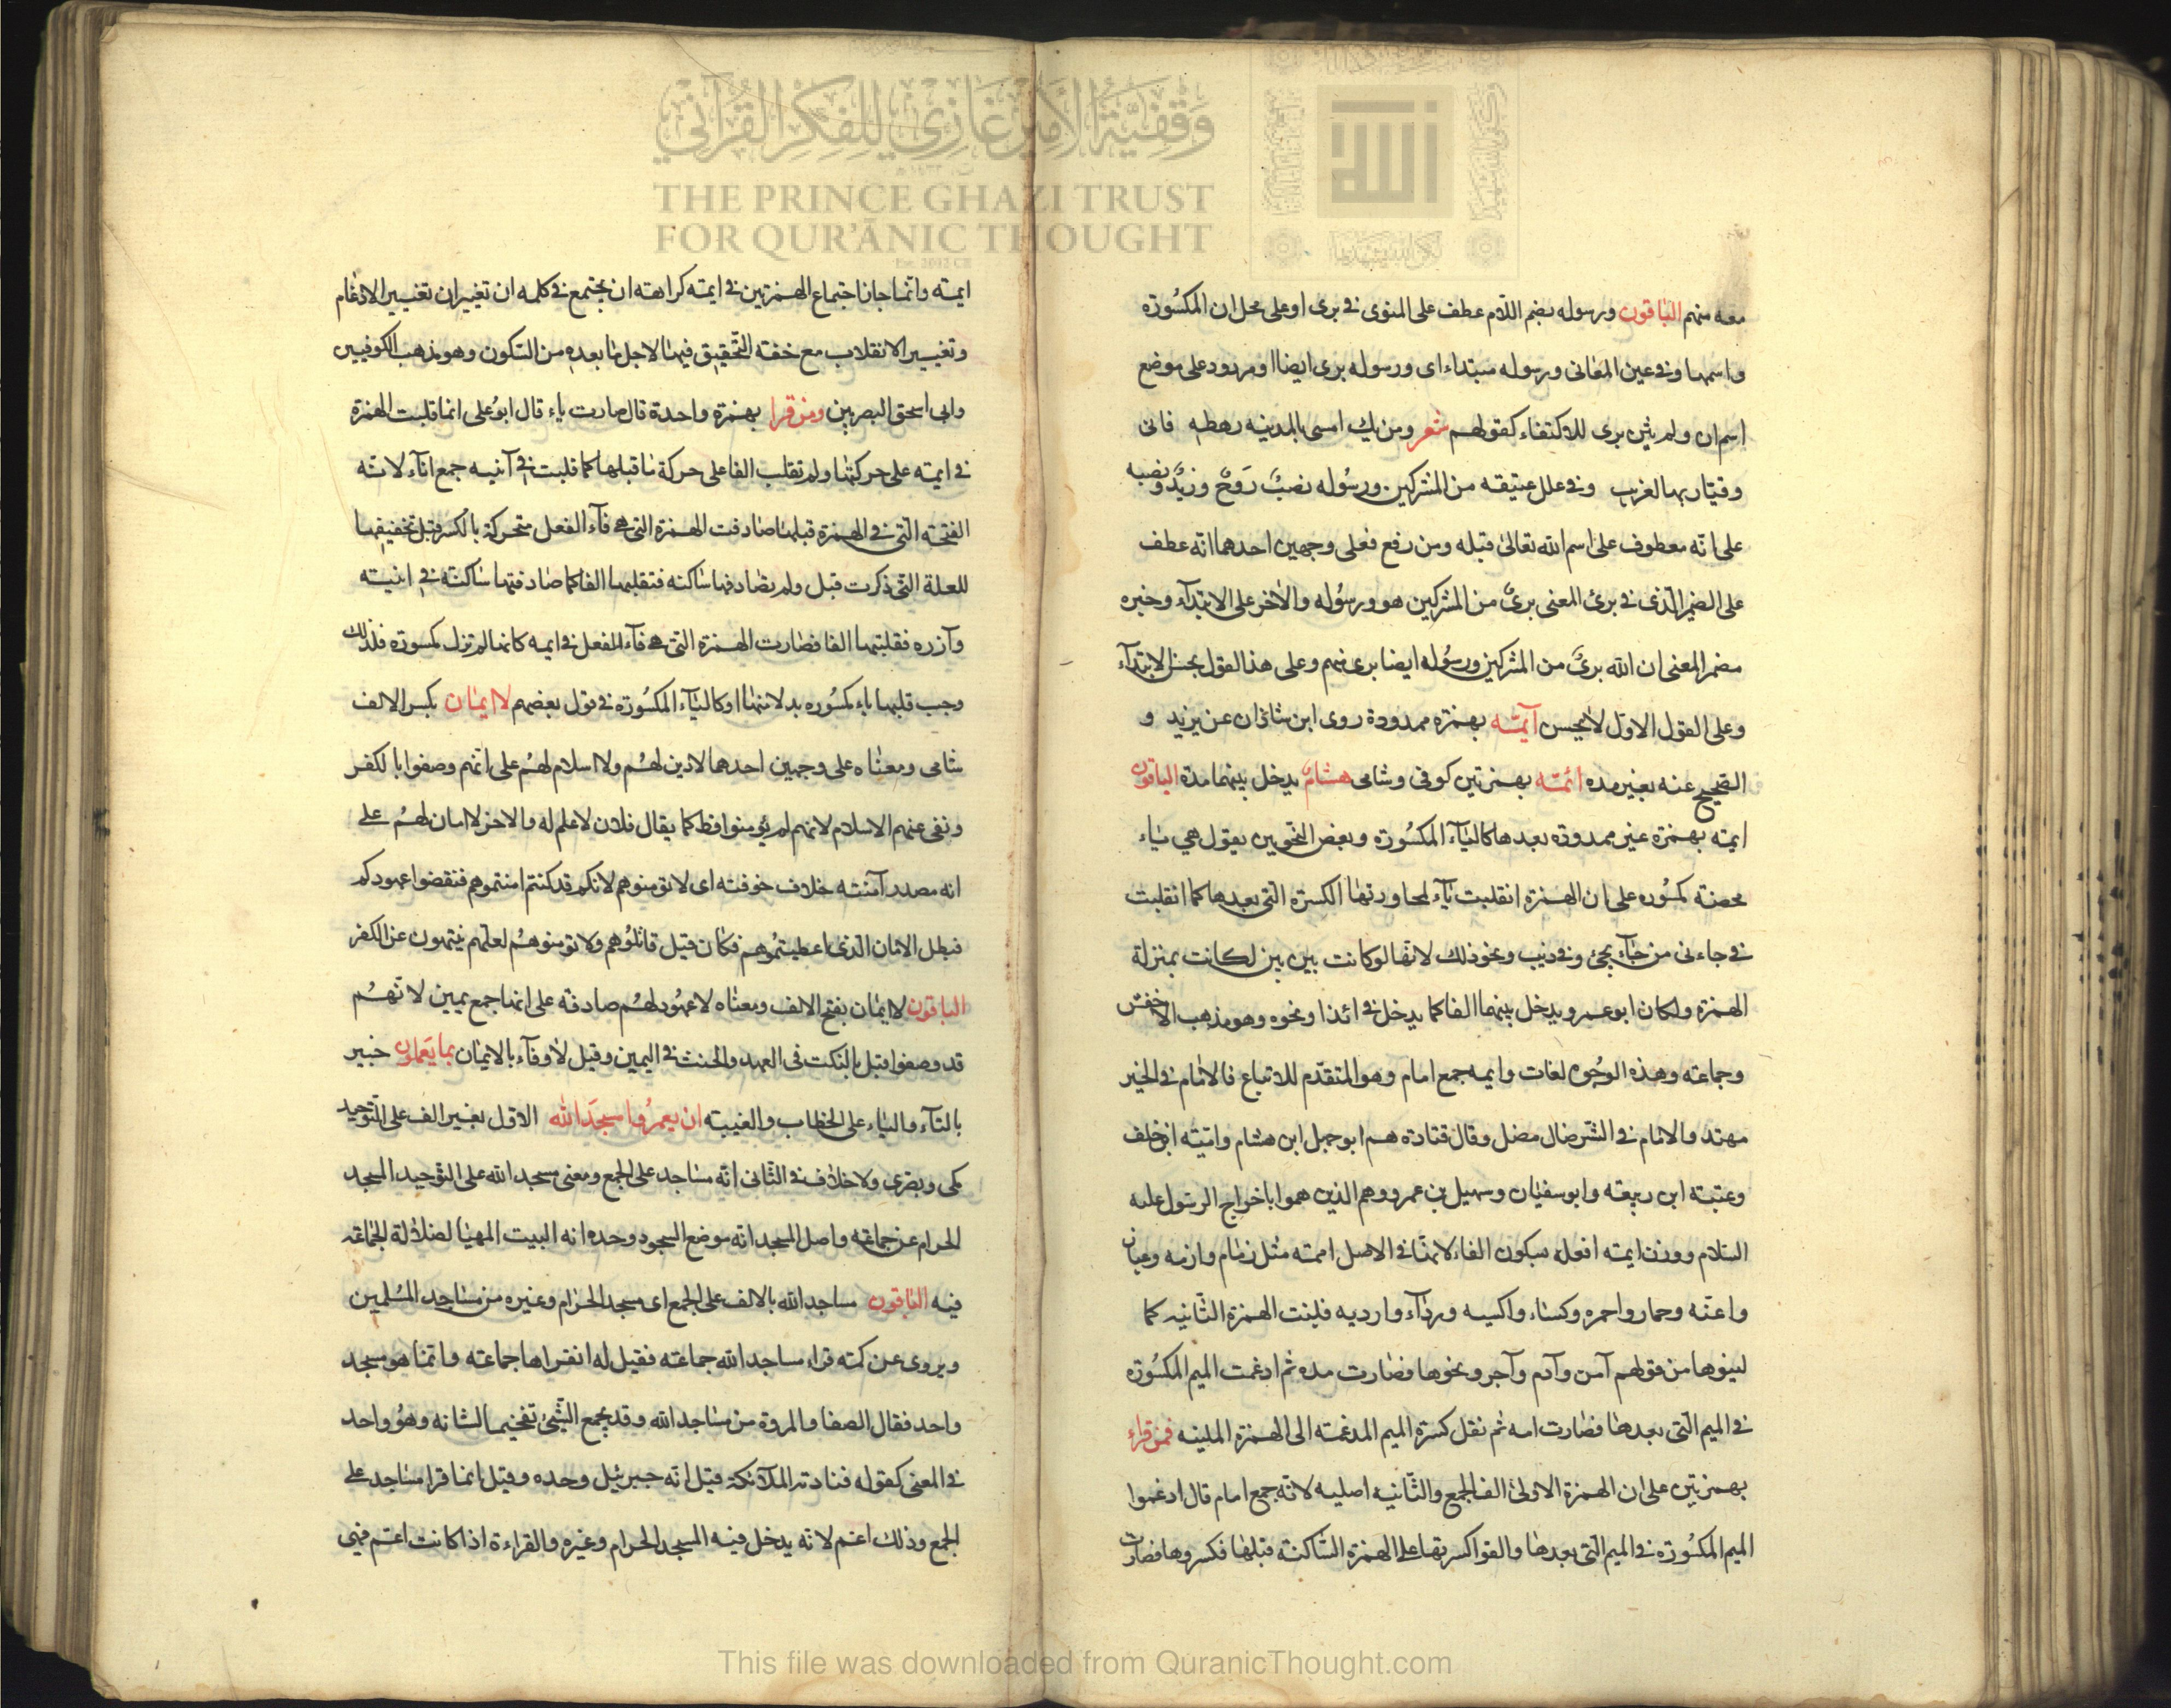 وَقْفِيَّةُ الأَمِيرِ غَازِي لِلْفِكْرِ الْقُرْآنِي
THE PRINCE GHAZI TRUST
FOR QUR'ĀNIC THOUGHT
معه منهم الباقون ورسوله بضم اللام عطف على المنوى فى برى او على محل ان المكسورة
واسمها وفى عين المعانى ورسوله مبتداء اى ورسوله برى ايضا او مردود على موضع
اسم ان ولم يثن برى للاكتفاء كقولهم شعر ومن يك امسى بالمدينه رهطه فانى
وقيار بها لغريب وفى علل عتيقه من المشركين ورسوله نصب روح وزيد ونصبه
على انه معطوف على اسم الله تعالى قبله ومن رفع فعلى وجهين احدهما انه عطف
على الضمير الذى فى برئ المعنى برئ من المشركين هو ورسوله والاخر على الابتداء وخبره
مضمر المعنى ان الله برئ من المشركين ورسوله ايضا برى منهم وعلى هذا القول يحسن الابتداء
وعلى القول الاول لا يحسن آيمّه بهمزه ممدودة روى ابن شاذان عن يزيد و
الصحيح عنه بغير مده ائمّه بهمزتين كوفى وشامى هشام يدخل بينهما مدة الباقون
ايمه بهمزه غير ممدوده بعدها كالياء المكسوره وبعض النحويين يقول هي ياء
محضة مكسوره على ان الهمزة انقلبت ياء لمجاورتها الكسرة التى بعدها كما انقلبت
فى جاءنى من جاء يجئ وفى ذيب ونحو ذلك لانها لو كانت بين بين لكانت بمنزلة
الهمزة ولكان ابو عمرو يدخل بينهما الفا كما يدخل فى ائذا ونحوه وهو مذهب الاخفش
وجماعته وهذه الوجوه لغات وايمه جمع امام وهو المتقدم للاتباع فالامام فى الخير
مهتد والامام فى الشر ضال مضل وقال قتادة هم ابو جهل ابن هشام واميّه ابن خلف
وعتبة ابن ربيعه وابو سفيان وسهيل بن عمرو وهم الذين هموا باخراج الرسول عليه
السلام ووزن ايمه افعله بسكون الفاء لانها فى الاصل اممه مثل زمام وازمه وعنان
واعنّه وحمار واحمره وكساء واكسيه ورداء وارديه فلينت الهمزة الثانيه كما
لينوها من قولهم آمن وآدم وآجر ونحوها فصارت مده ثم ادغمت الميم المكسورة
فى الميم التى بعدها فصارت امه ثم نقل كسرة الميم المدغمة الى الهمزة الملينه فمن قراء
بهمزتين على ان الهمزة الاولى الف الجمع والثانيه اصليه لانه جمع امام قال ادغموا
الميم المكسوره فى الميم التى بعدها والقوا كسرتها على الهمزة الساكنة قبلها فكسروها فصارت
ايمته وانما جاز اجتماع الهمزتين فى ايمته كراهته ان يجتمع فى كلمه ان تغييران تغيير الادغام
وتغيير الانقلاب مع خفته التحقيق فيها لاجل ما بعده من السكون وهو مذهب الكوفيين
وابى اسحق البصريين ومن قرا بهمزة واحدة قال صارت ياء قال ابو على انما قلبت الهمزة
فى ايمته على حركتها ولم تقلب الفا على حركة ما قبلها كما قلبت فى آنيه جمع اناء لانه
الفتحة التى فى الهمزة قبلها صادفت الهمزة التى هى فاء الفعل متحركة بالكسر قبل تخفيفها
للعلة التى ذكرت قبل ولم يصادفها ساكنه فتقلبها الفا كما صادفتها ساكنة فى انيته
وآزره فقلبتها الفا فصارت الهمزة التى هى فاء الفعل فى ايمه كانها لم تزل مكسورة فلذلك
وجب قلبها ياء مكسوره بدلا منها او كالياء المكسورة فى قول بعضهم لا ايمان بكسر الالف
شامى ومعناه على وجهين احدهما لا دين لهم ولا اسلام لهم على انهم وصفوا بالكفر
ونفى عنهم الاسلام لانهم لم يؤمنوا قط كما يقال فلان لا علم له والاخر لا امان لهم على
انه مصدر آمنته خلاف خوفته اى لا تؤمنوهم لانكم قد كنتم امنتموهم فنقضوا عهودكم
فبطل الامان الذى اعطيتموهم فكان قيل قاتلوهم ولا تؤمنوهم لعلهم ينتهون عن الكفر
الباقون لا ايمان بفتح الالف ومعناه لا عهود لهم صادقه على انها جمع يمين لانهم
قد وصفوا قبل بالنكث فى العهد والحنث فى اليمين وقيل لا وفاء بالايمان بما يعملون خبير
بالتاء والياء على الخطاب والغيبته ان يعمروا مسجد الله الاول بغير الف على التوحيد
مكى وبصرى ولا خلاف فى الثانى انه مساجد على الجمع ومعنى مسجد الله على التوحيد المسجد
الحرام عن جماعة واصل المسجد انه موضع السجود وحده انه البيت المهيا لصلاة الجماعة
فيه الباقون مساجد الله بالالف على الجمع اى مسجد الحرام وغيره من مساجد المسلمين
ويروى عن قراء مساجد الله جماعته فقيل له اتقراها جماعته وانما هو مسجد
واحد فقال الصفا والمروة من مساجد الله وقد يجمع الشئ تفخيما لشانه وهو واحد
فى المعنى كقوله فنادته الملآئكة قيل انه جبرئيل وحده وقيل انما قرا مساجد على
الجمع وذلك اعم لانه يدخل فيه المسجد الحرام وغيره والقراءة اذا كانت اعم فهى
This file was downloaded from QuranicThought.com